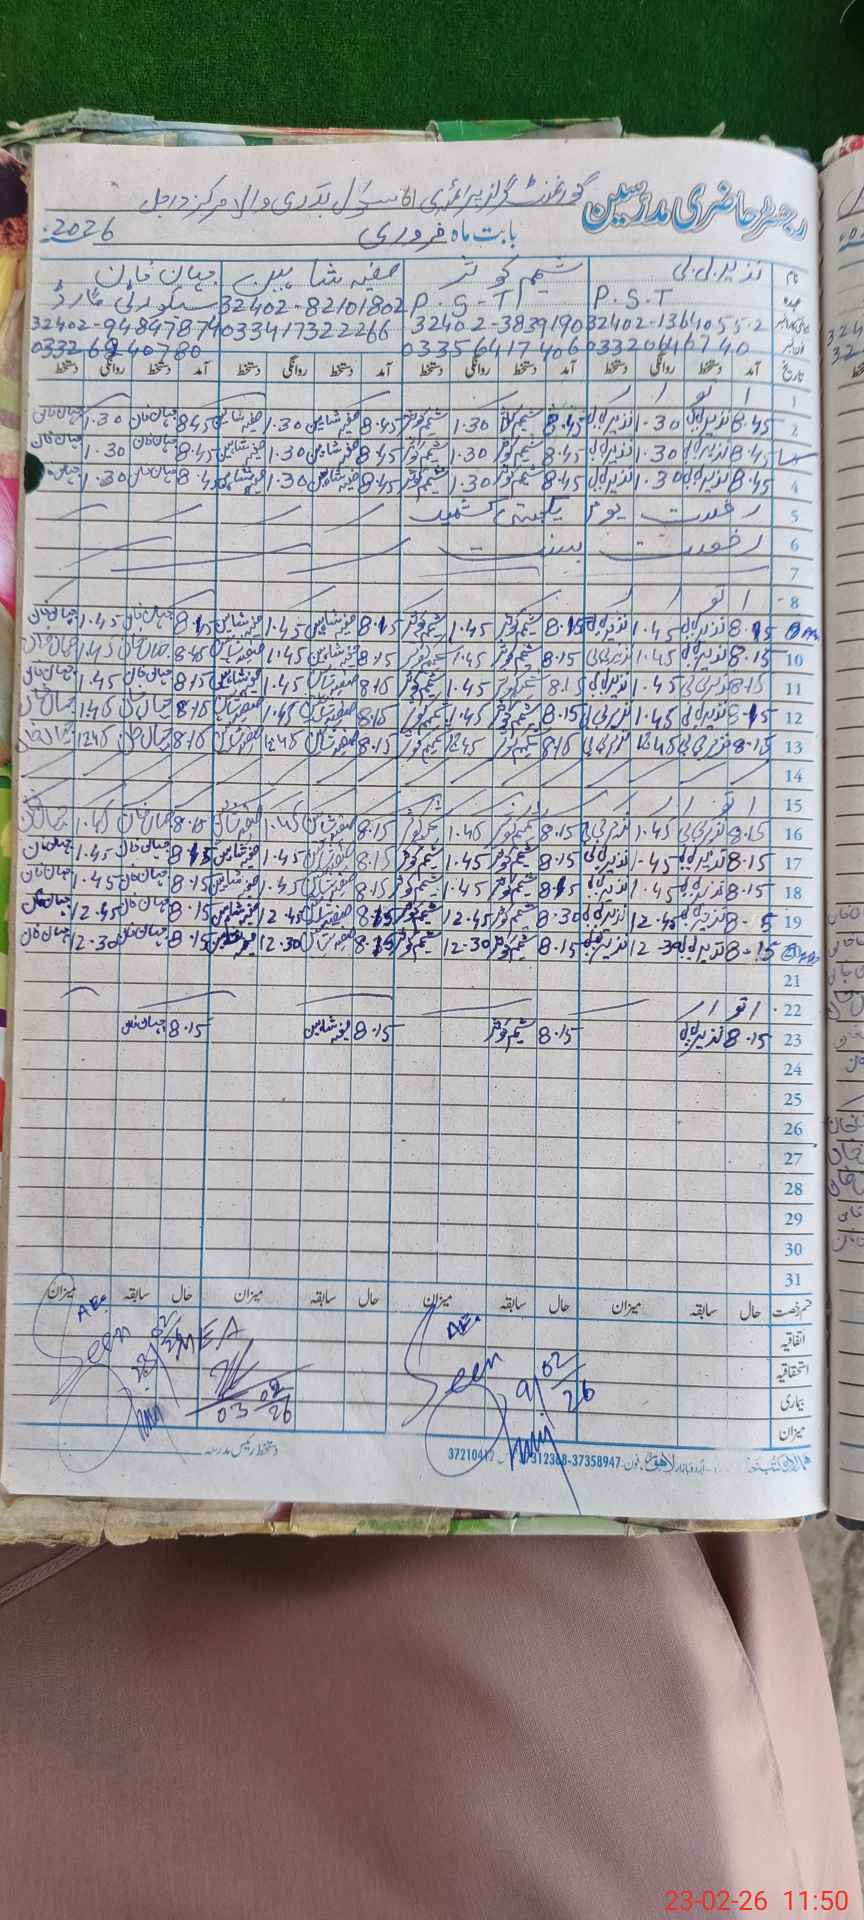 رجسٹر حاضری مدرسین گورنمنٹ گرلز پرائمری سکول بدری والا مرکز داجل
بابت ماہ فروری 2026
نام نذیر بی بی شمیم کوثر صفیہ شاہین جہان خان
عہدہ P.S.T P.S.T سیکورٹی گارڈ
32402-1364055-2 32402-3839190 32402-82101802 32402-9484787-4
03320646740 03356417406 03341732266
تاریخ آمد دستخط روانگی دستخط آمد دستخط روانگی دستخط آمد دستخط روانگی دستخط آمد دستخط روانگی دستخط
1 اتوار
2 8.45 نذیر بی بی 1.30 نذیر بی بی 8.45 شمیم کوثر 1.30 شمیم کوثر 8.45 صفیہ شاہین 1.30 صفیہ شاہین 8.45 جہان خان 1.30 جہان خان
3 8.45 نذیر بی بی 1.30 نذیر بی بی 8.45 شمیم کوثر 1.30 شمیم کوثر 8.45 صفیہ شاہین 1.30 صفیہ شاہین 8.45 جہان خان 1.30 جہان خان
4 8.45 نذیر بی بی 1.30 نذیر بی بی 8.45 شمیم کوثر 1.30 شمیم کوثر 8.45 صفیہ شاہین 1.30 صفیہ شاہین 8.45 جہان خان 1.30 جہان خان
5 رخصت یوم یکجہتی کشمیر
6 رخصت بسنت
7
8 اتوار
8.15 نذیر بی بی 1.45 نذیر بی بی 8.15 شمیم کوثر 1.45 شمیم کوثر 8.15 صفیہ شاہین 1.45 صفیہ شاہین 8.15 جہان خان 1.45 جہان خان
10 8.15 نذیر بی بی 1.45 نذیر بی بی 8.15 شمیم کوثر 1.45 شمیم کوثر 8.15 صفیہ شاہین 1.45 صفیہ شاہین جہان خان 1.45 جہان خان
11 8.15 نذیر بی بی 1.45 نذیر بی بی 8.15 شمیم کوثر 1.45 شمیم کوثر 8.15 صفیہ شاہین 1.45 صفیہ شاہین 8.15 جہان خان 1.45 جہان خان
12 8.15 نذیر بی بی 1.45 نذیر بی بی 8.15 شمیم کوثر 1.45 شمیم کوثر 8.15 صفیہ شاہین 1.45 صفیہ شاہین 8.15 جہان خان 1.45 جہان خان
13 8.15 نذیر بی بی 12.45 نذیر بی بی 8.15 شمیم کوثر 12.45 شمیم کوثر 8.15 صفیہ شاہین 12.45 صفیہ شاہین 8.15 جہان خان 12.45 جہان خان
14
15 اتوار
16 8.15 نذیر بی بی 1.45 نذیر بی بی 8.15 شمیم کوثر 1.45 شمیم کوثر 8.15 صفیہ شاہین 1.45 صفیہ شاہین 8.15 جہان خان 1.45 جہان خان
17 8.15 نذیر بی بی 1.45 نذیر بی بی 8.15 شمیم کوثر 1.45 شمیم کوثر 8.15 صفیہ شاہین 1.45 صفیہ شاہین 8.15 جہان خان 1.45 جہان خان
18 8.15 نذیر بی بی 1.45 نذیر بی بی 8.15 شمیم کوثر 1.45 شمیم کوثر 8.15 صفیہ شاہین 1.45 صفیہ شاہین 8.15 جہان خان 1.45 جہان خان
19 نذیر بی بی 12.45 نذیر بی بی 8.30 شمیم کوثر 12.45 شمیم کوثر 8.15 صفیہ شاہین 12.45 صفیہ شاہین 8.15 جہان خان 12.45 جہان خان
8-15 نذیر بی بی 12-30 نذیر بی بی 8.15 شمیم کوثر 12-30 شمیم کوثر 8.15 صفیہ شاہین 12.30 صفیہ شاہین 8.15 جہان خان 12.30 جہان خان
21
22 اتوار
23 8.15 نذیر بی بی 8.15 شمیم کوثر 8.15 صفیہ شاہین 8.15 جہان خان
24
25
26
27
28
29
30
31
قسم رخصت حال سابقہ میزان حال سابقہ میزان حال سابقہ میزان حال سابقہ میزان
اتفاقیہ
استحقاقیہ
بیماری
میزان
AEO Seen 9/02/26
MEA 03 02/26
AEO Seen
دستخط رئیس مدرسہ
اردو بازار لاہور فون 37358947
37210417
23-02-26 11:50